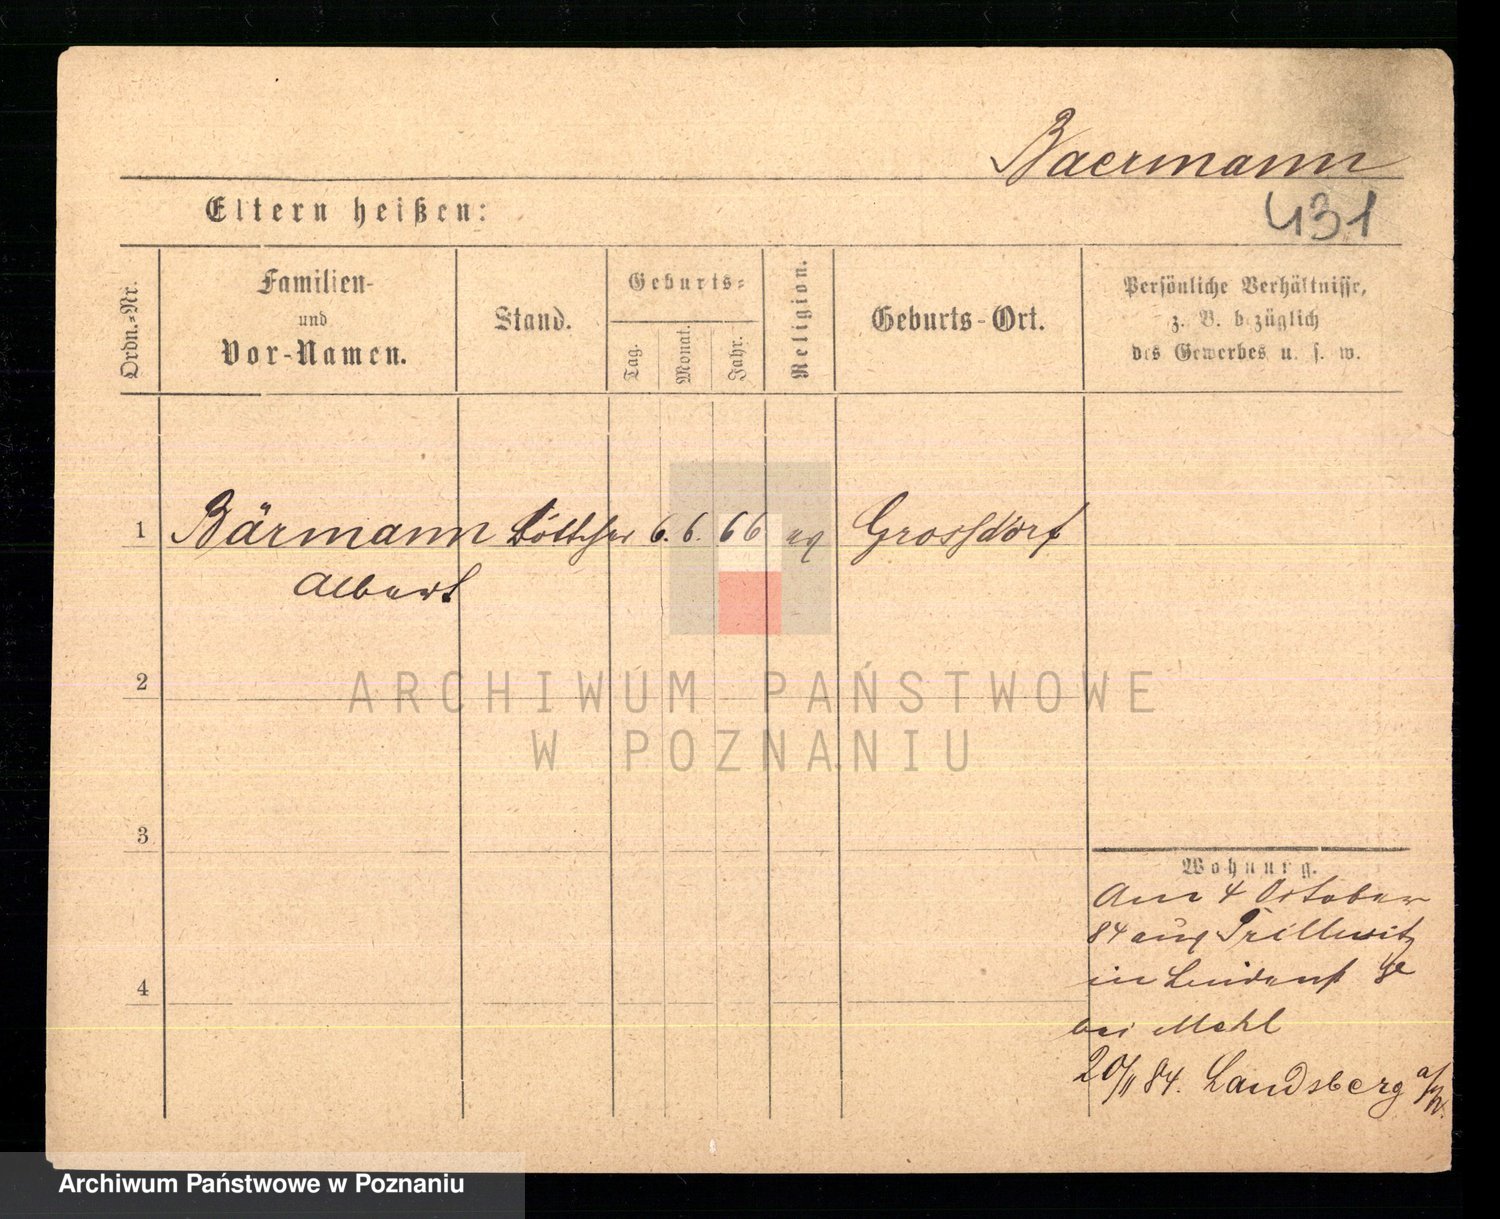 Baermann
431
Eltern heißen:
Ordn.-Nr.
Familien-
und
Vor-Namen.
Stand.
Geburts-
Tag.
Monat.
Jahr.
Religion.
Geburts-Ort.
Persönliche Verhältnisse,
z. B. bezüglich
des Gewerbes u. s. w.
1 Bärmann Böttcher 6. 6. 66 ev Grossdorf
Albert
2
ARCHIWUM PAŃSTWOWE
W POZNANIU
3
Wohnung.
Am 4 October
84 aus
in
bei Mehl
20/11 84. Landsberg a/W.
4
Archiwum Państwowe w Poznaniu